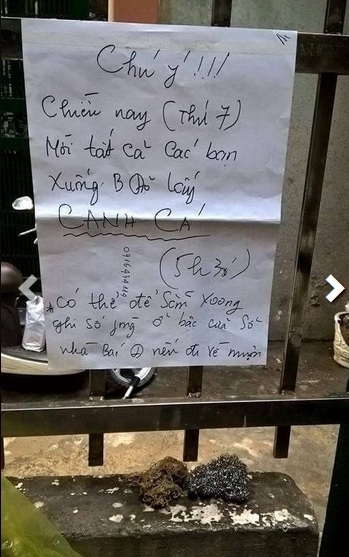 Chú ý !!!
Chiều nay (Thứ 7)
Mời tất cả các bạn
Xuống B lấy
CANH CÁ
(5h30)
* có thể để Sẵn Xoong
ghi số ở bậc cửa Sổ
nhà Bác nếu đi về muộn